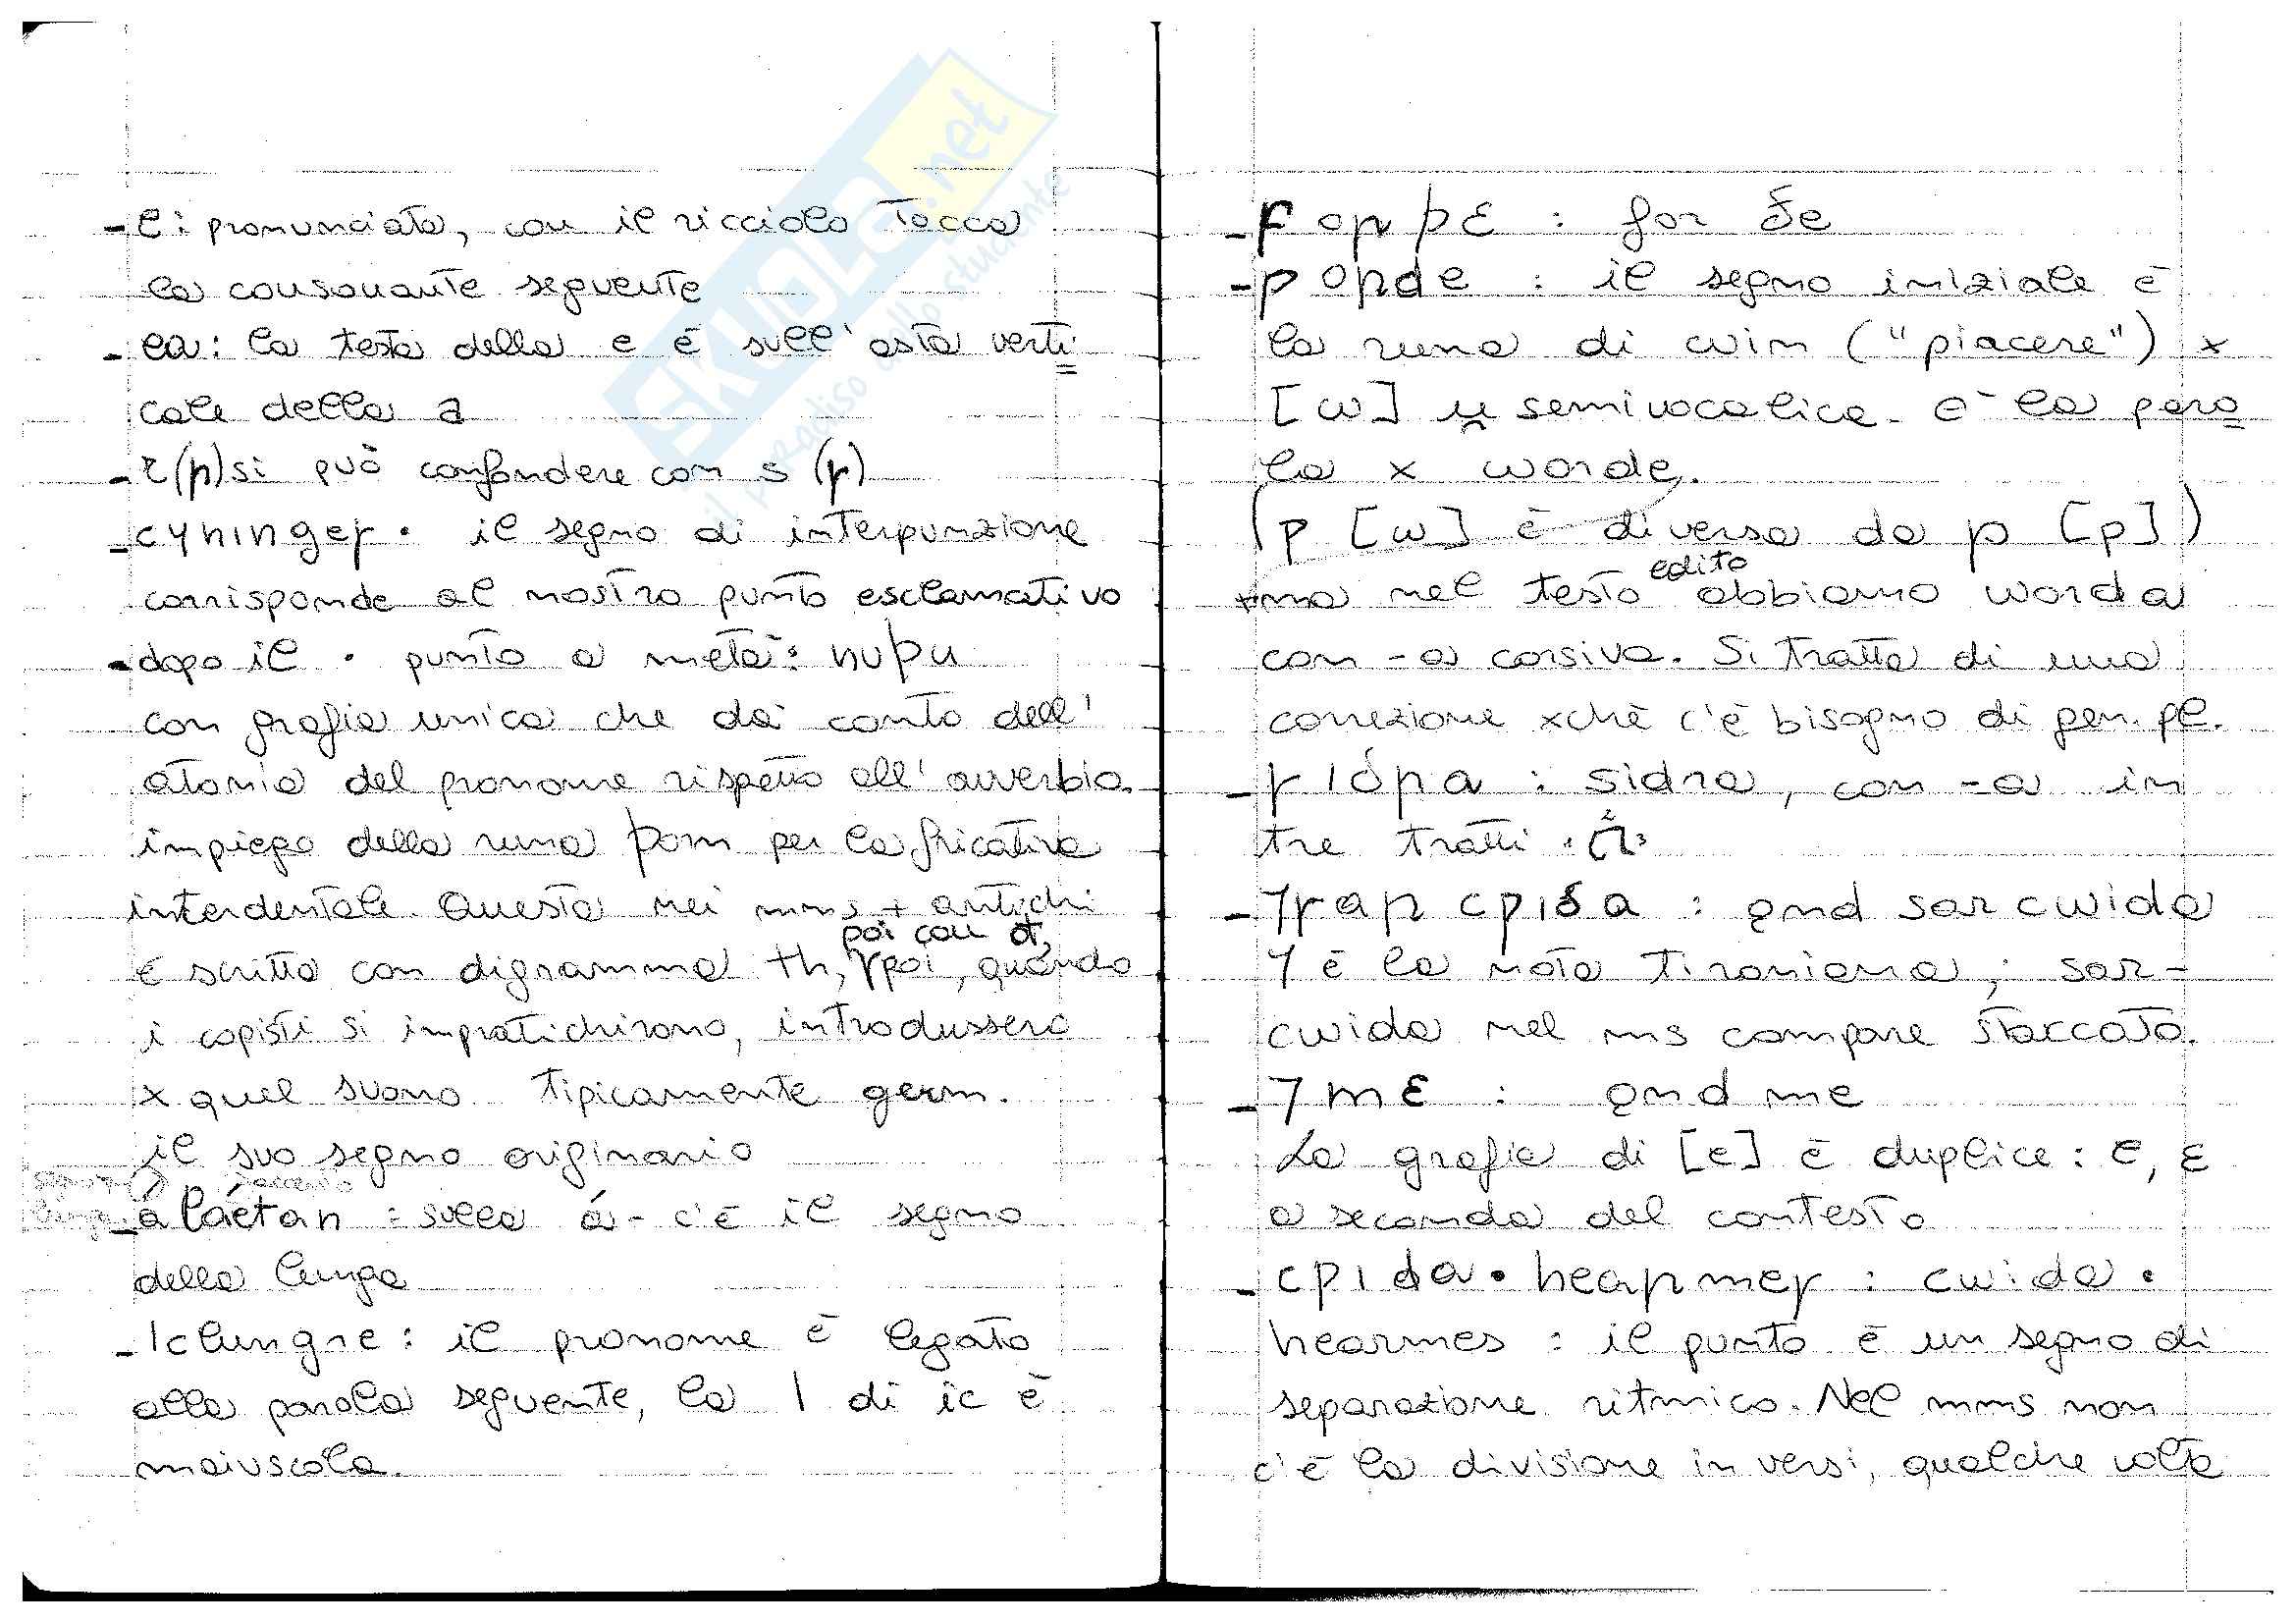 - e: pronunciata, con il ricciolo tocca
la consonante seguente
- ea: la testa della e è sull'asta verti
cale della a
- r (ꞃ) si può confondere con s (ꞅ)
- cyningeꞅ · il segno di interpunzione
corrisponde al nostro punto esclamativo
- dopo il · punto a metà: nuþu
con grafia unica che dà conto dell'
atonia del pronome rispetto all'avverbio.
impiego della runa þorn per la fricativa
interdentale. Questa nei mms + antichi
poi con đ,
è scritta con digramma th, poi, quando
i copisti si impratichirono, introdussero
x quel suono tipicamente germ.
il suo segno originario
- álǽtan : sulla á- c'è il segno
della lunga
- Iclungre: il pronome è legato
alla parola seguente, la I di ic è
maiuscola.
- Foꞃ þε : for đe
- ƿoꞃde : il segno iniziale è
la runa di win ("piacere") x
[w] u̯ semivocalica. è la paro
la x worde.
(ƿ [w] è diversa da p [p])
edito
ma nel testo abbiamo worda
con -a corsiva. Si tratta di una
correzione xchè c'è bisogno di gen. pl.
- ꞅıðꞃa : sidra, con -a in
tre tratti. 1 2 3
- ⁊ꞅaꞃ cƿıða : ond sar cwida
⁊ è la nota tironiana; sar-
cwida nel ms compare staccato.
- ⁊ mε : ond me
La grafia di [e] è duplice: e, ε
a seconda del contesto
- cƿıda · heaꞃmeꞅ : cwida ·
hearmes : il punto è un segno di
separazione ritmico. Nel mms non
c'è la divisione in versi, qualche volta